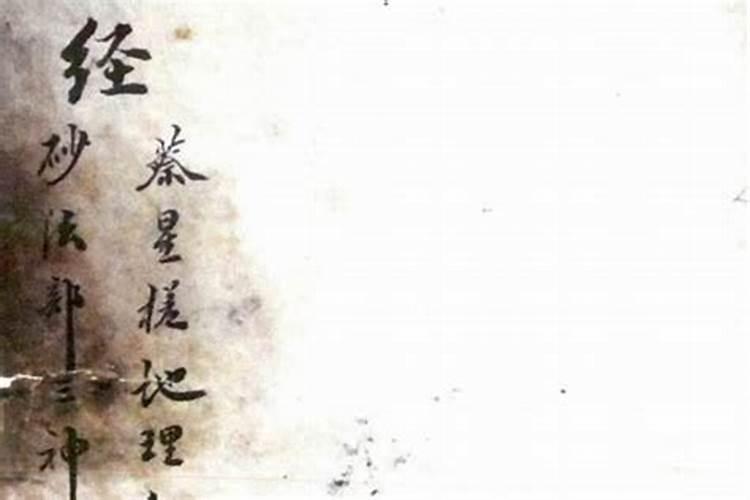 蔡星槎地理
经
砂法部三神